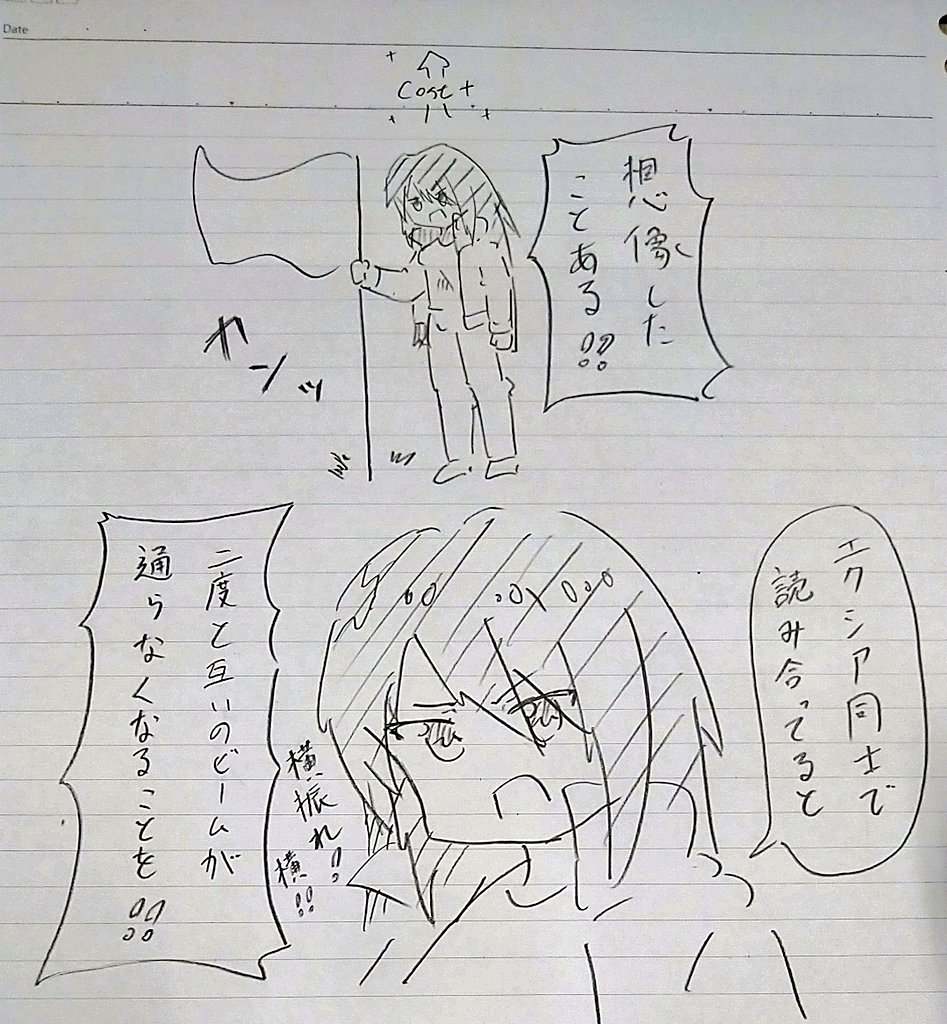 Date
Cost
想像した
ことある!!
ヤーンッ
エクシア同士で
読み合ってると
二度と互いのビームが
通らなくなることを!!
横振れ!!
横!!